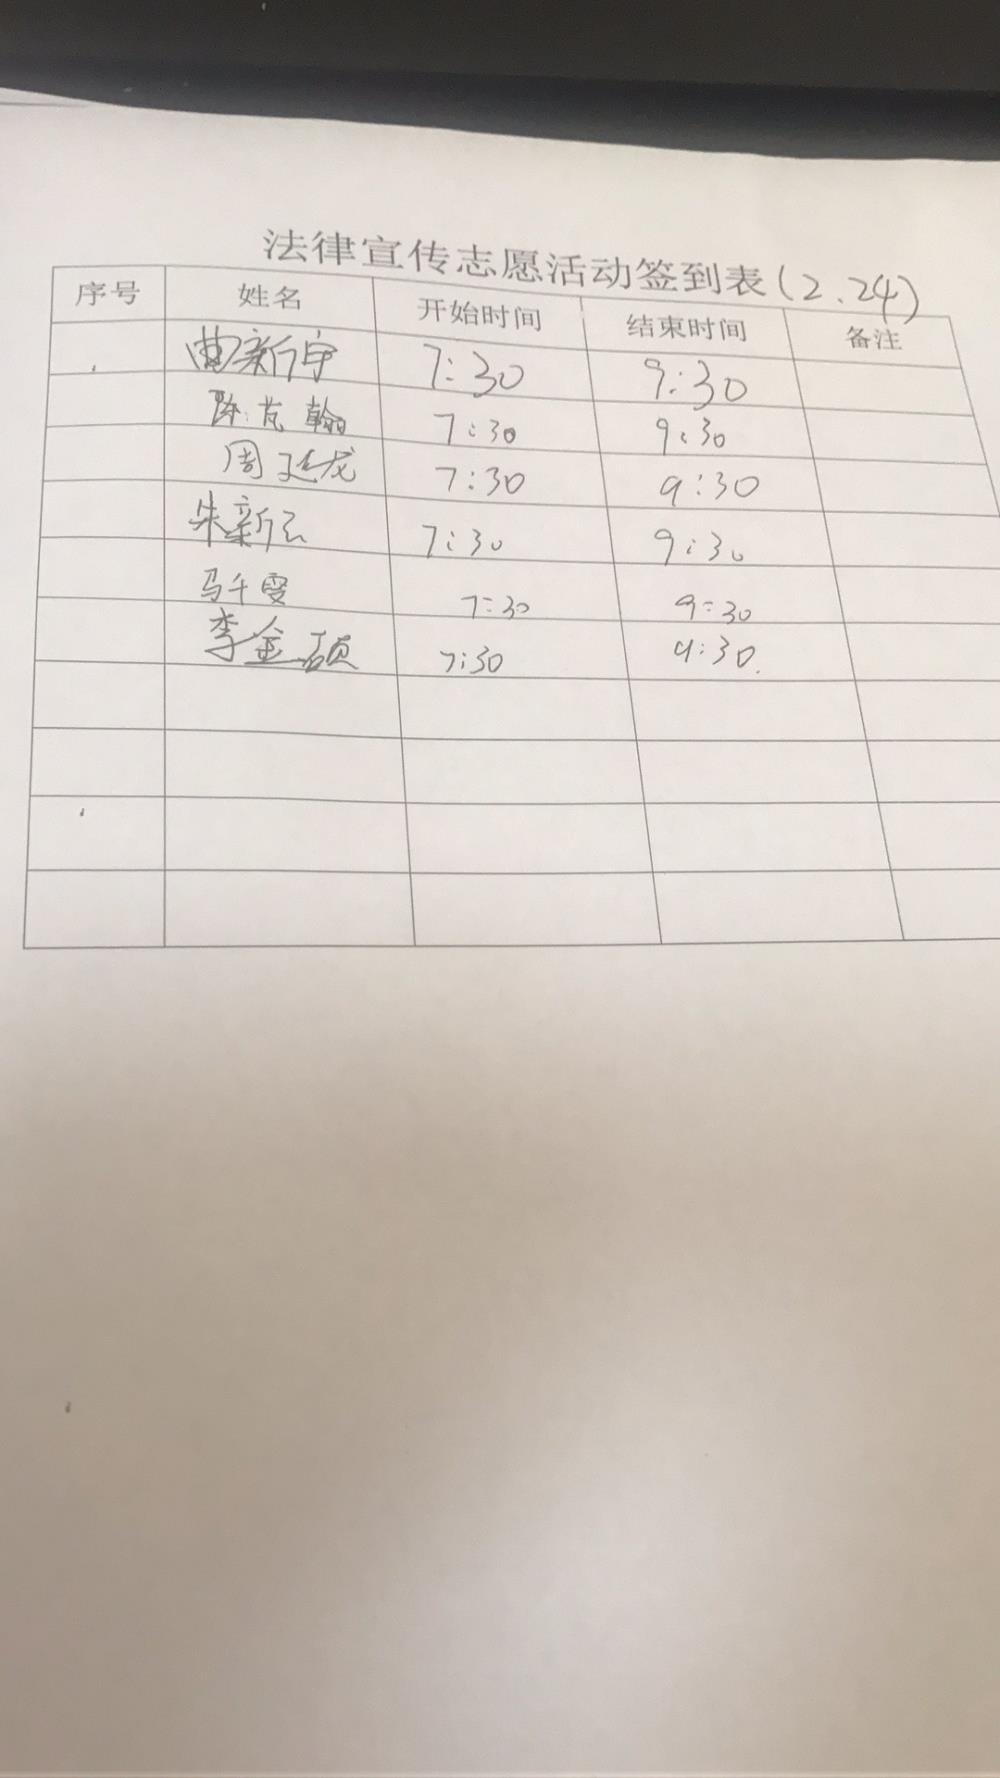 法律宣传志愿活动签到表(2.24)
序号 姓名 开始时间 结束时间 备注
曲新宇 7:30 9:30
陈芃翰 7:30 9:30
周延龙 7:30 9:30
朱新云 7:30 9:30
马千雯 7:30 9:30
李金硕 7:30 9:30.